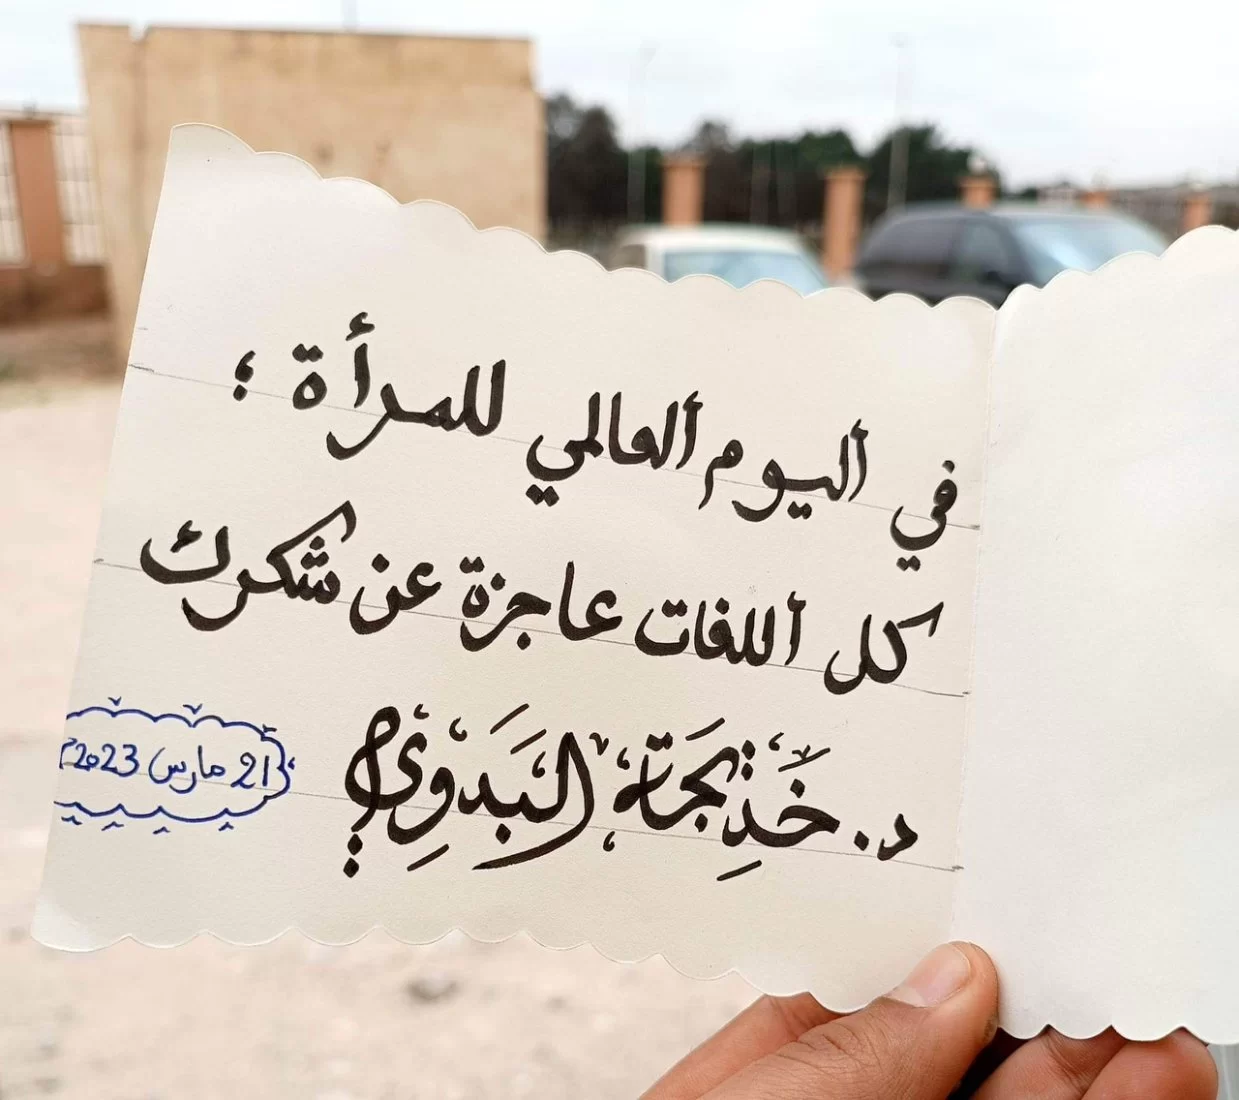 في أليوم ألعالمي للمرأة ؛
كل أللغات عاجزة عن شكرك
د. خَدِيجَة البَدَوِي
21 مارس 2023م